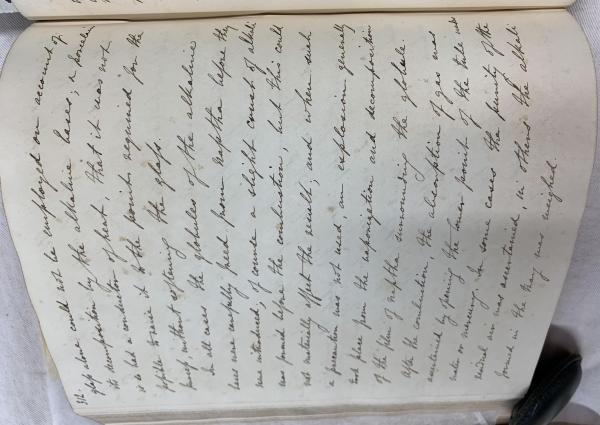 312.
glass alone could not be employed on account of
its decomposition by the alkaline bases; a porcelain
is so bad a conductor of heat, that it was not
possible to raise it to the points required for the
process, without softening the glass.
In all cases the globules of the alkaline
bases were carefully freed from naptha before they
were introduced, of course a slight crust of alkali
was formed before the combustion, but this could
not materially affect the result; and when such
a precaution was not used, an explosion generally
took place from the vaporization and decomposition
of the film of naptha surrounding the globule.
After the combustion, the absorption of gas was
ascertained by opening the lower point of the tube under
water or mercury. In some cases the purity of the
residual air was ascertained, in others the alkali
formed in the tray was weighed.